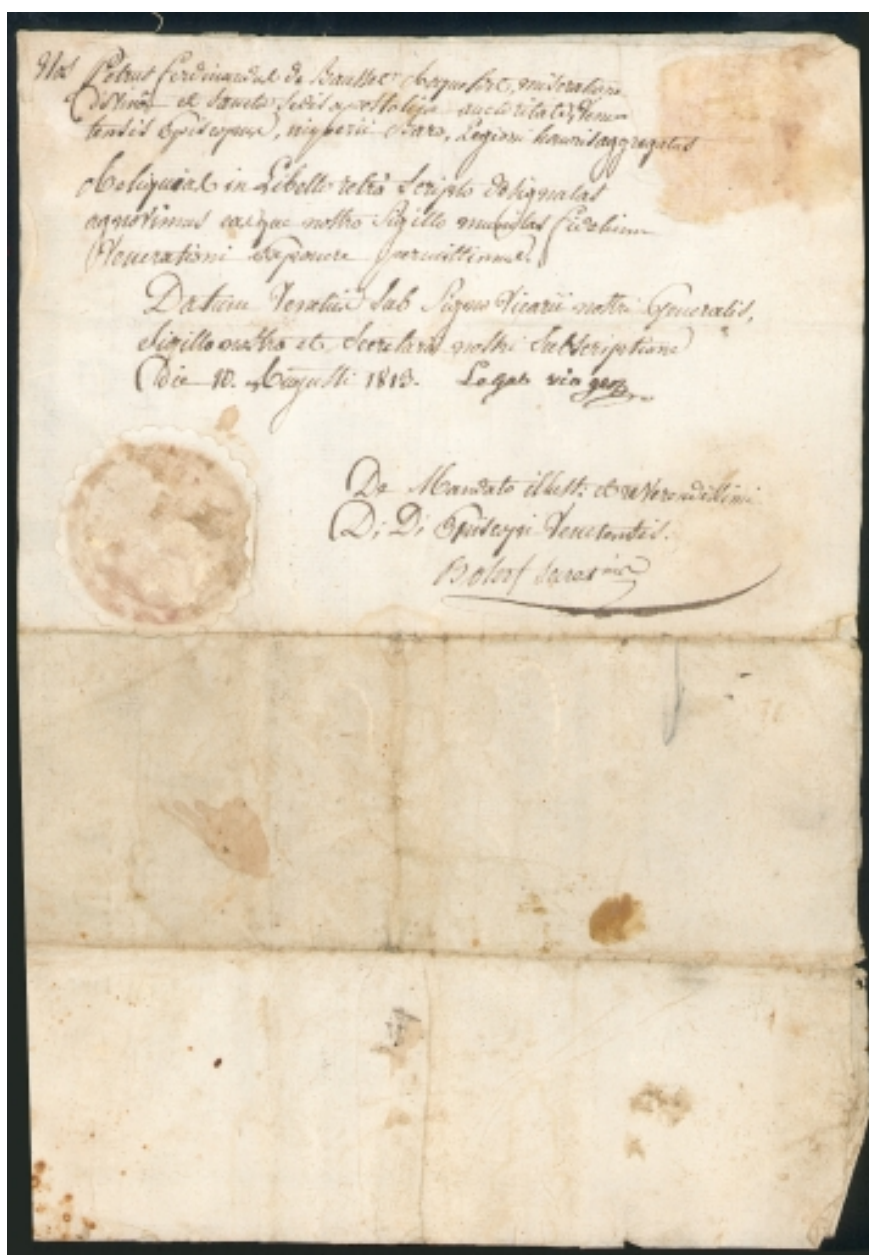 Nos Petrus Ferdinandus de Bausset Roquefort, miseratione
Divinâ et Sanctæ Sedis apostolicæ auctoritate, Vene
tensis Episcopus, imperii Baro, Legioni honoris aggregatus
Reliquias in Libello retrò Scripto designatas
agnovimus easque nostro Sigillo munitas fidelium
Venerationi Exponere permittimus.
Datum Venetiis Sub Signo Vicarii nostri Generalis,
Sigillo nostro et Secretarii nostri Subscriptione
Die 10. Augusti 1813. Legal vic gen
De Mandato illust: et reverendissimi
D; D; Episcopi Venetensis.